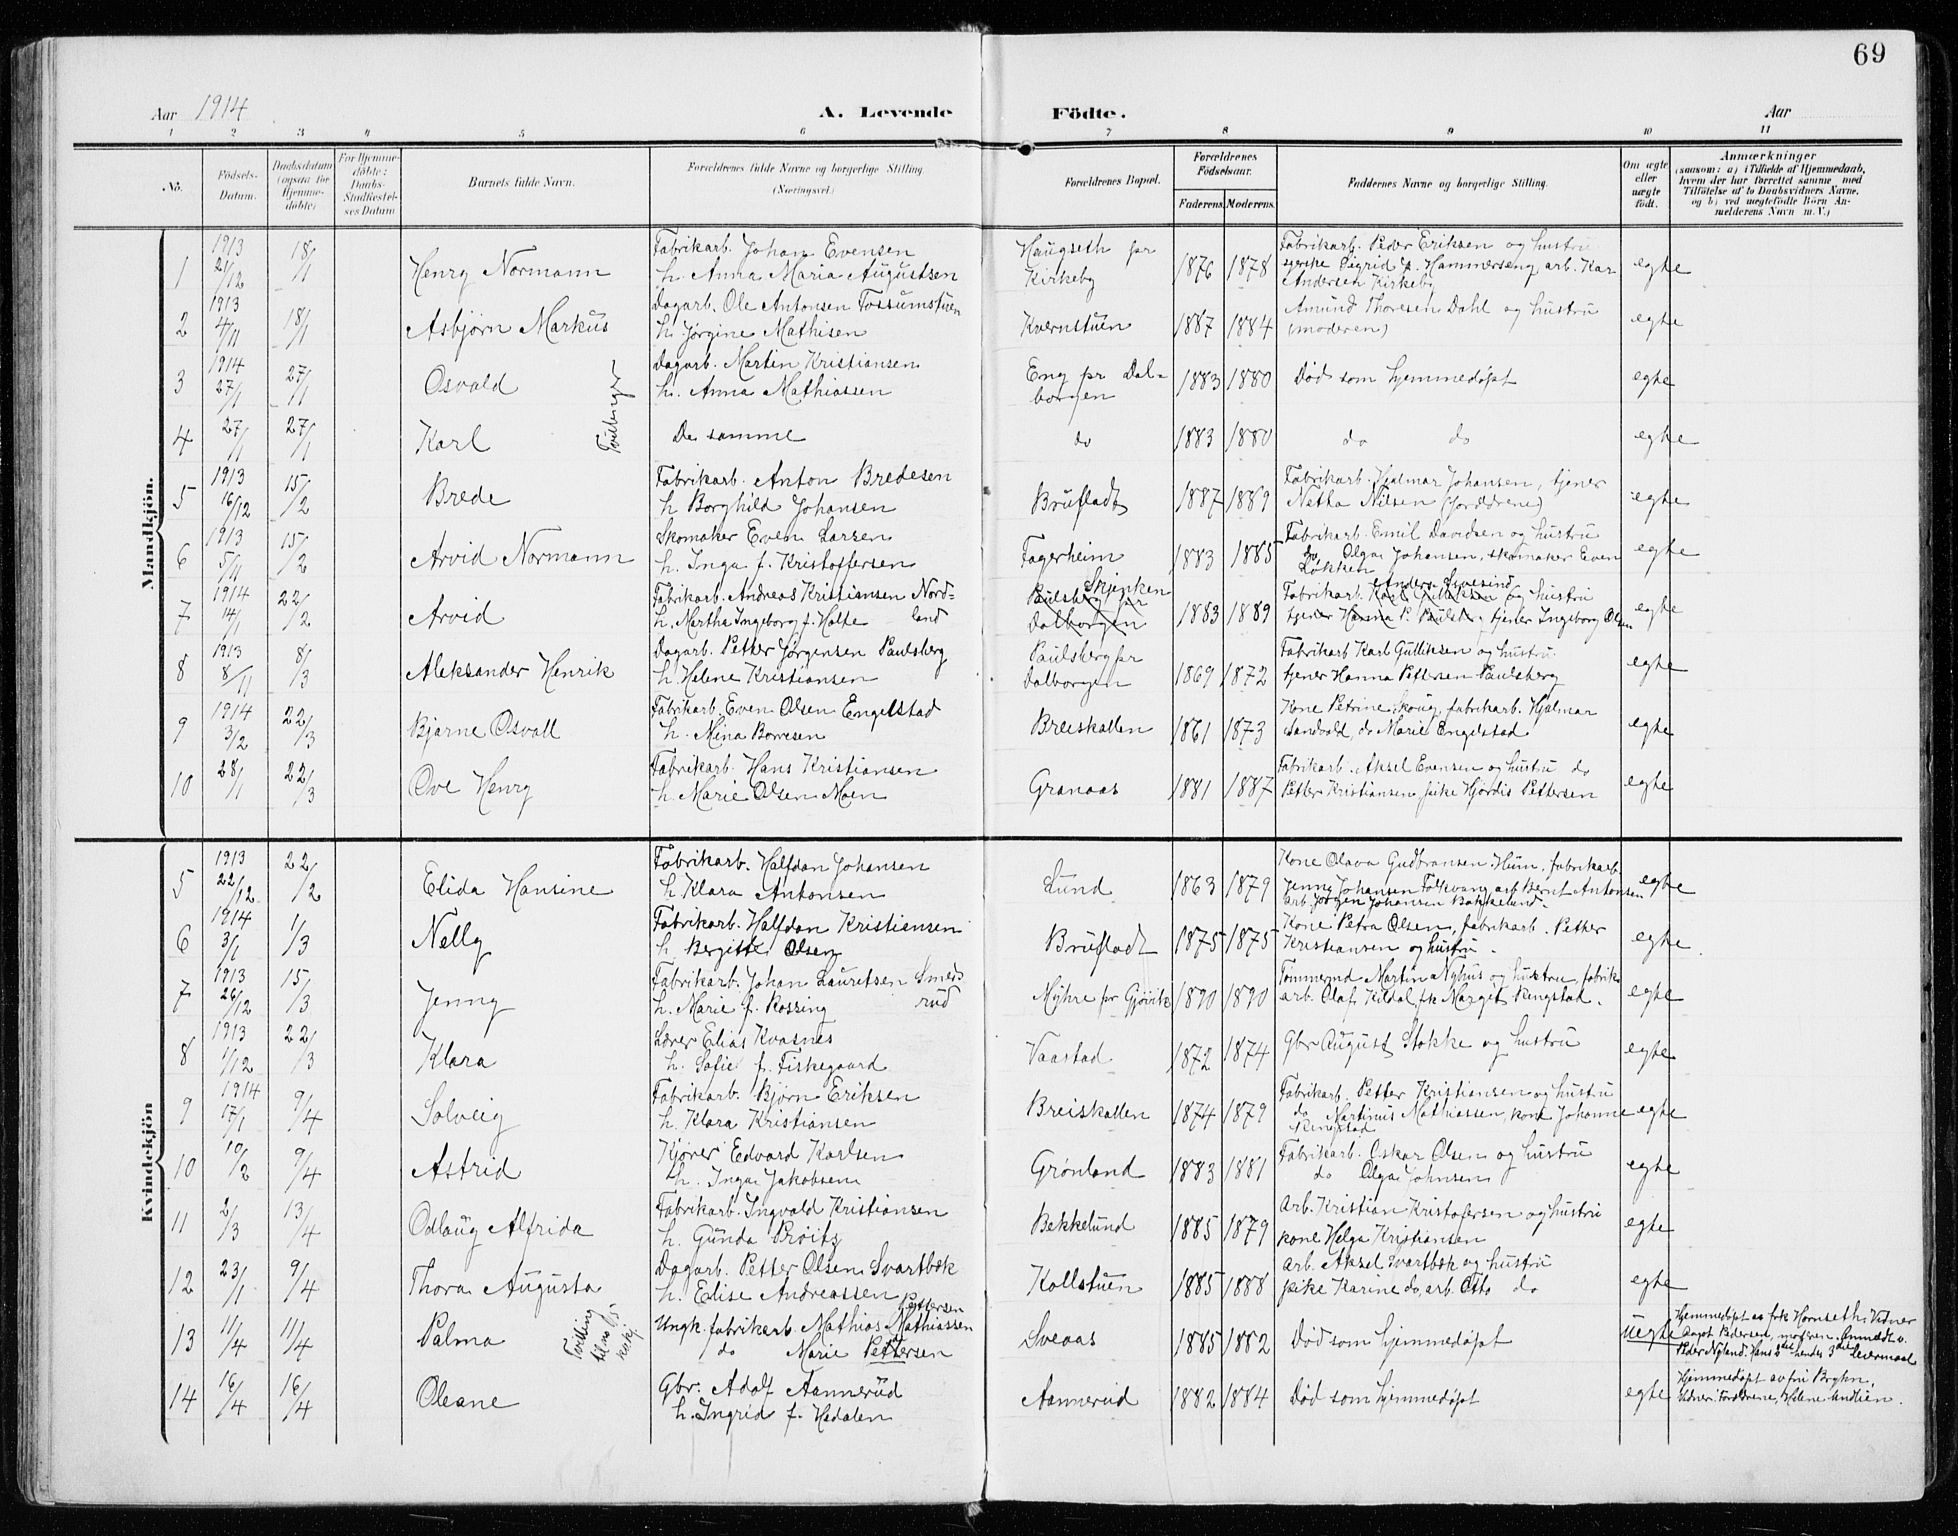 69
Aar 1914 A. Levende Födte. Aar
1 2 3 4 5 6 7 8 9 10 11
No. Födsels-Datum. Daabsdatum (ogsaa for Hjemme-döbte) For Hjemme-döbte: Daabs-Stadfæstel-ses Datum Barnets fulde Navn. Forældrenes fulde Navne og borgerlige Stilling. (Næringsvei.) Forældrenes Bopæl. Forældrenes Födselsaar. Faderens. Moderens. Faddernes Navne og borgerlige Stilling. Om ægte eller uægte födt. Anmærkninger (saasom: a) i Tilfælde af Hjemmedaab, hvem der har forrettet samme med Tilföielse af to Daabsvidners Navne, og b) ved uægtefödte Börn An-melderens Navn m. V.)
Mandkjön.
1 1913 21/12 18/1 Henry Normann Fabrikarb. Johan Evensen
h. Anna Maria Augustsen Haugseth pr Kirkeby 1876 1878 Fabrikarb. Peder Eriksen og hustru
Sigrid p. Hammerseng, arb. Kar
Andersen Kirkeby egte
2 1913 4/11 18/1 Asbjørn Markus Dagarb. Ole Antonsen Tossumstuen
h. Jørgine Mathisen Kvernstuen 1887 1884 Amund Thoresen Dahl og hustru
(moderen) egte
3 1914 27/1 27/1 Osvald Tvillinger Dagarb. Martin Kristiansen
h. Anna Mathiassen Eng pr Dal-borgen 1883 1880 Død som hjemmedøpt egte
4 27/1 27/1 Karl De samme do 1883 1880 do do egte
5 1913 16/12 15/2 Brede Fabrikarb. Anton Bredesen
h Borghild Johansen Brufladt 1887 1889 Fabrikarb. Hjalmar Johansen, tjener
Netha Nilsen (forældrene) egte
6 1913 5/11 15/2 Arvid Normann Skomaker Even Larsen
h. Inga f. Kristoffersen Fagerheim 1883 1885 Fabrikarb. Emil Davidsen og hustru
do Olga Johansen, skomaker Even
Løkken egte
7 1914 14/1 22/2 Arvid Fabrikarb. Andreas Kristiansen Nord-land
h. Martha Ingeborg f. Holte Skjenken
Paulsberg pr
Dalborgen 1883 1889 Anders Sivesind
Fabrikarb. Karl Gulliksen og hustru
tjener Hanna P. Paulsb. tjener Ingeborg Olsen egte
8 1913 8/11 8/3 Aleksander Henrik Dagarb. Petter Jørgensen Paulsberg
h. Helene Kristiansen Paulsberg pr
Dalborgen 1869 1872 Fabrikarb Karl Gulliksen og hustru
tjener Hanna Pettersen Paulsberg egte
9 1914 3/2 22/3 Bjarne Osvall Fabrikarb. Even Olsen Engelstad
h. Mina Borresen Breiskallen 1861 1873 Kone Petrine Skoug, fabrikarb. Hjalmar
Sandvold, do Marie Engelstad egte
10 28/1 22/3 Ove Henry Fabrikarb. Hans Kristiansen
h. Marie Olsen Moen Granaas 1881 1887 Fabrikarb. Aksel Evensen og hustru do
Petter Kristiansen pike Hjørdis Pettersen egte
Kvindekjön
5 1913 22/12 22/2 Elida Hansine Fabrikarb. Halfdan Johansen
h Klara Antonsen Lund 1863 1879 Kone Olava Gudbransen Hum, fabrikarb.
Jenny Johansen Folkvang, arb Bernt Antonsen
arb. Jørgen Johansen Bakkelund. egte
6 1914 3/1 1/3 Nelly Fabrikarb. Halfdan Kristiansen
h. Bergitte Olsen Brufladt 1875 1875 Kone Petra Olsen, fabrikarb. Petter
Kristiansen og hustru. egte
7 1913 26/12 15/3 Jenny Fabrikarb. Johan Lauritsen Smeds-rud
h. Marie f. Rossing Myhre pr Gjøvik 1890 1890 Tømmermd Martin Nyhus og hustru, fabrik-
arb. Olaf Kildal, frk Margit Ringstad. egte
8 1913 1/12 22/3 Klara Lærer Elias Kvasnes
h. Sofie f. Fiskegaard Vaastad 1872 1874 Gbr August Stokke og hustru egte
9 1914 17/1 9/4 Solveig Fabrikarb. Bjørn Eriksen
h. Klara Kristiansen Breiskallen 1874 1879 Fabrikarb. Petter Kristiansen og hustru
do Martinus Mathiassen, kone Johanne
Ringstad egte
10 10/2 9/4 Astrid Kjører Edvard Karlsen
h. Inga Jakobsen Grønland 1883 1881 Fabrikarb. Oskar Olsen og hustru
do Olga Johnsen egte
11 2/3 13/4 Odlaug Alfrida Fabrikarb. Ingvald Kristiansen
h. Gunda Prøits Bekkelund 1885 1879 Arb. Kristian Kristofersen og hustru
kone Helga Kristiansen egte
12 23/1 9/4 Thora Augusta Dagarb. Petter Olsen Svartbæk
h. Elise Andreassen Kollstuen 1885 1888 Arb. Aksel Svartbæk og hustru
pike Karine do, arb. Otto do egte
13 11/4 11/4 Palma Tvilling til no 15 mskj. Ungk. fabrikarb. Mathias Mathiassen Pettersen
do Marie Pettersen Sveaas 1885 1882 Død som hjemmedøpt uegte Hjemmedøpt av frk Hornseth. Vidner
Aagot Pedersen, moderen. Anmeldt v.
Peder Nyland. Hans 2det hendes 3die leiermaal
14 16/4 16/4 Oleane Gbr. Adolf Aannerud
h. Ingrid f. Hedalen Aannerud 1882 1884 Død som hjemmedøpt egte Hjemmedøpt av fru Bryhn,
Vidner: Forældrene, Helene Undlien.